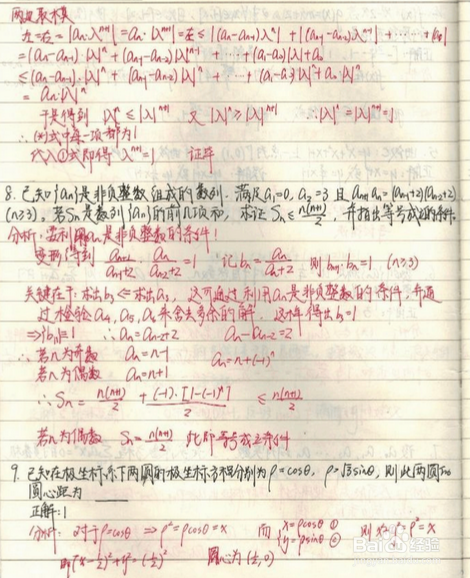 两边取模
左=右=|aₙλⁿ⁺¹|=aₙ·|λ|ⁿ⁺¹=右≤|(aₙ-aₙ₋₁)λⁿ|+|(aₙ₋₁-aₙ₋₂)λⁿ⁻¹|+……+|a₀|
=(aₙ-aₙ₋₁)·|λ|ⁿ+(aₙ₋₁-aₙ₋₂)|λ|ⁿ⁻¹+……+(a₁-a₀)|λ|+a₀
≤(aₙ-aₙ₋₁)·|λ|ⁿ+(aₙ₋₁-aₙ₋₂)|λ|ⁿ+……+(a₁-a₀)|λ|ⁿ+a₀|λ|ⁿ
=aₙ|λ|ⁿ
于是得到 |λ|ⁿ≤|λ|ⁿ⁺¹ 又|λ|ⁿ≥|λ|ⁿ⁺¹ ∴|λ|ⁿ=|λ|ⁿ⁺¹=1
∴ 式中每一项都为1
代入①式即得 λⁿ⁺¹=1 证毕
8. 已知{aₙ}是非负整数组成的数列. 满足a₁=0, a₂=3 且 aₙ₊₁aₙ=(aₙ₋₁+2)(aₙ₋₂+2)
(n≥3), 若Sₙ是数列{aₙ}的前n项和, 求证Sₙ≤n(n+1)/2, 并指出等号成立的条件.
分析: 要利用aₙ是非负整数的条件!
变形得到 aₙ₊₁/(aₙ₋₁+2)·aₙ/(aₙ₋₂+2)=1 记bₙ=aₙ/(aₙ₋₂+2) 则bₙ₊₁·bₙ=1 (n≥3)
关键在于: 求出b₃⇐求出a₃, 这可通过利用aₙ是非负整数的条件, 并通
过检验a₄, a₅, a₆来舍去多余的解, 这样得出b₃=1
⇒|bₙ|=1 ∴aₙ=aₙ₋₂+2 aₙ-aₙ₋₂=2
∴若n为奇数 aₙ=n-1 aₙ=n+(-1)ⁿ
若n为偶数 aₙ=n+1
∴Sₙ=n(n+1)/2+(-1)·[1-(-1)ⁿ]/2≤n(n+1)/2
若n为偶数 Sₙ=n(n+1)/2 此即等号成立条件
9. 已知在极坐标系下两圆的极坐标方程分别为ρ=cosθ, ρ=√3sinθ, 则此两圆的
圆心距为____
正解: 1
分析: 对于ρ=cosθ ⇒ρ²=ρcosθ=x 而 {x=ρcosθ① y=ρsinθ② 则x²+y²=ρ²=x
即(x-½)²+y²=(½)² 圆心为(½,0)
Baidu经验